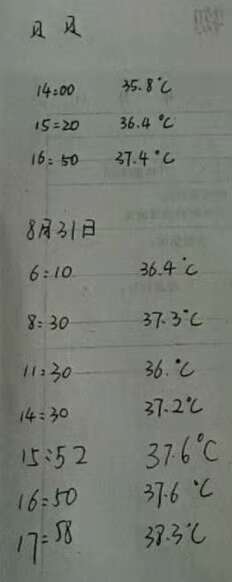 贝贝
14:00 35.8℃
15:20 36.4℃
16:50 37.4℃
8月31日
6:10 36.4℃
8:30 37.3℃
11:30 36.℃
14:30 37.2℃
15:52 37.6℃
16:50 37.6℃
17:58 38.3℃